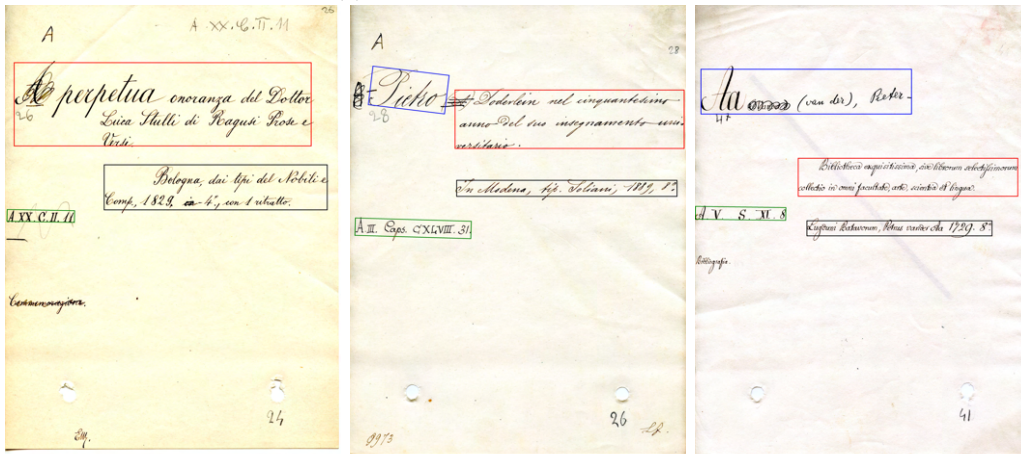 26
A
A XX. C. II. 11
A perpetua onoranza del Dottor
26
Luca Stulli di Ragusi Prose e
Versi.
Bologna, dai tipi del Nobili e
Comp., 1829, in 4°, con 1 ritratto.
A XX. C. II. 11
Commemorazione.
24
28
A
A Pietro
28
Doderlein nel cinquantesimo
anno del suo insegnamento uni-
versitario.
In Modena, tip. Soliani, 1889, 8°
A III. Caps. CXLVIII. 31.
26
9973
Aa (van der), Peter-
47
Bibliotheca exquisitissima, sive librorum selectissimorum
collectio in omni facultate, arte, scientia et lingua.
Lugduni Batavorum, Petrus vander Aa 1729. 8°
A V. S. XI. 8
Bibliografia.
41